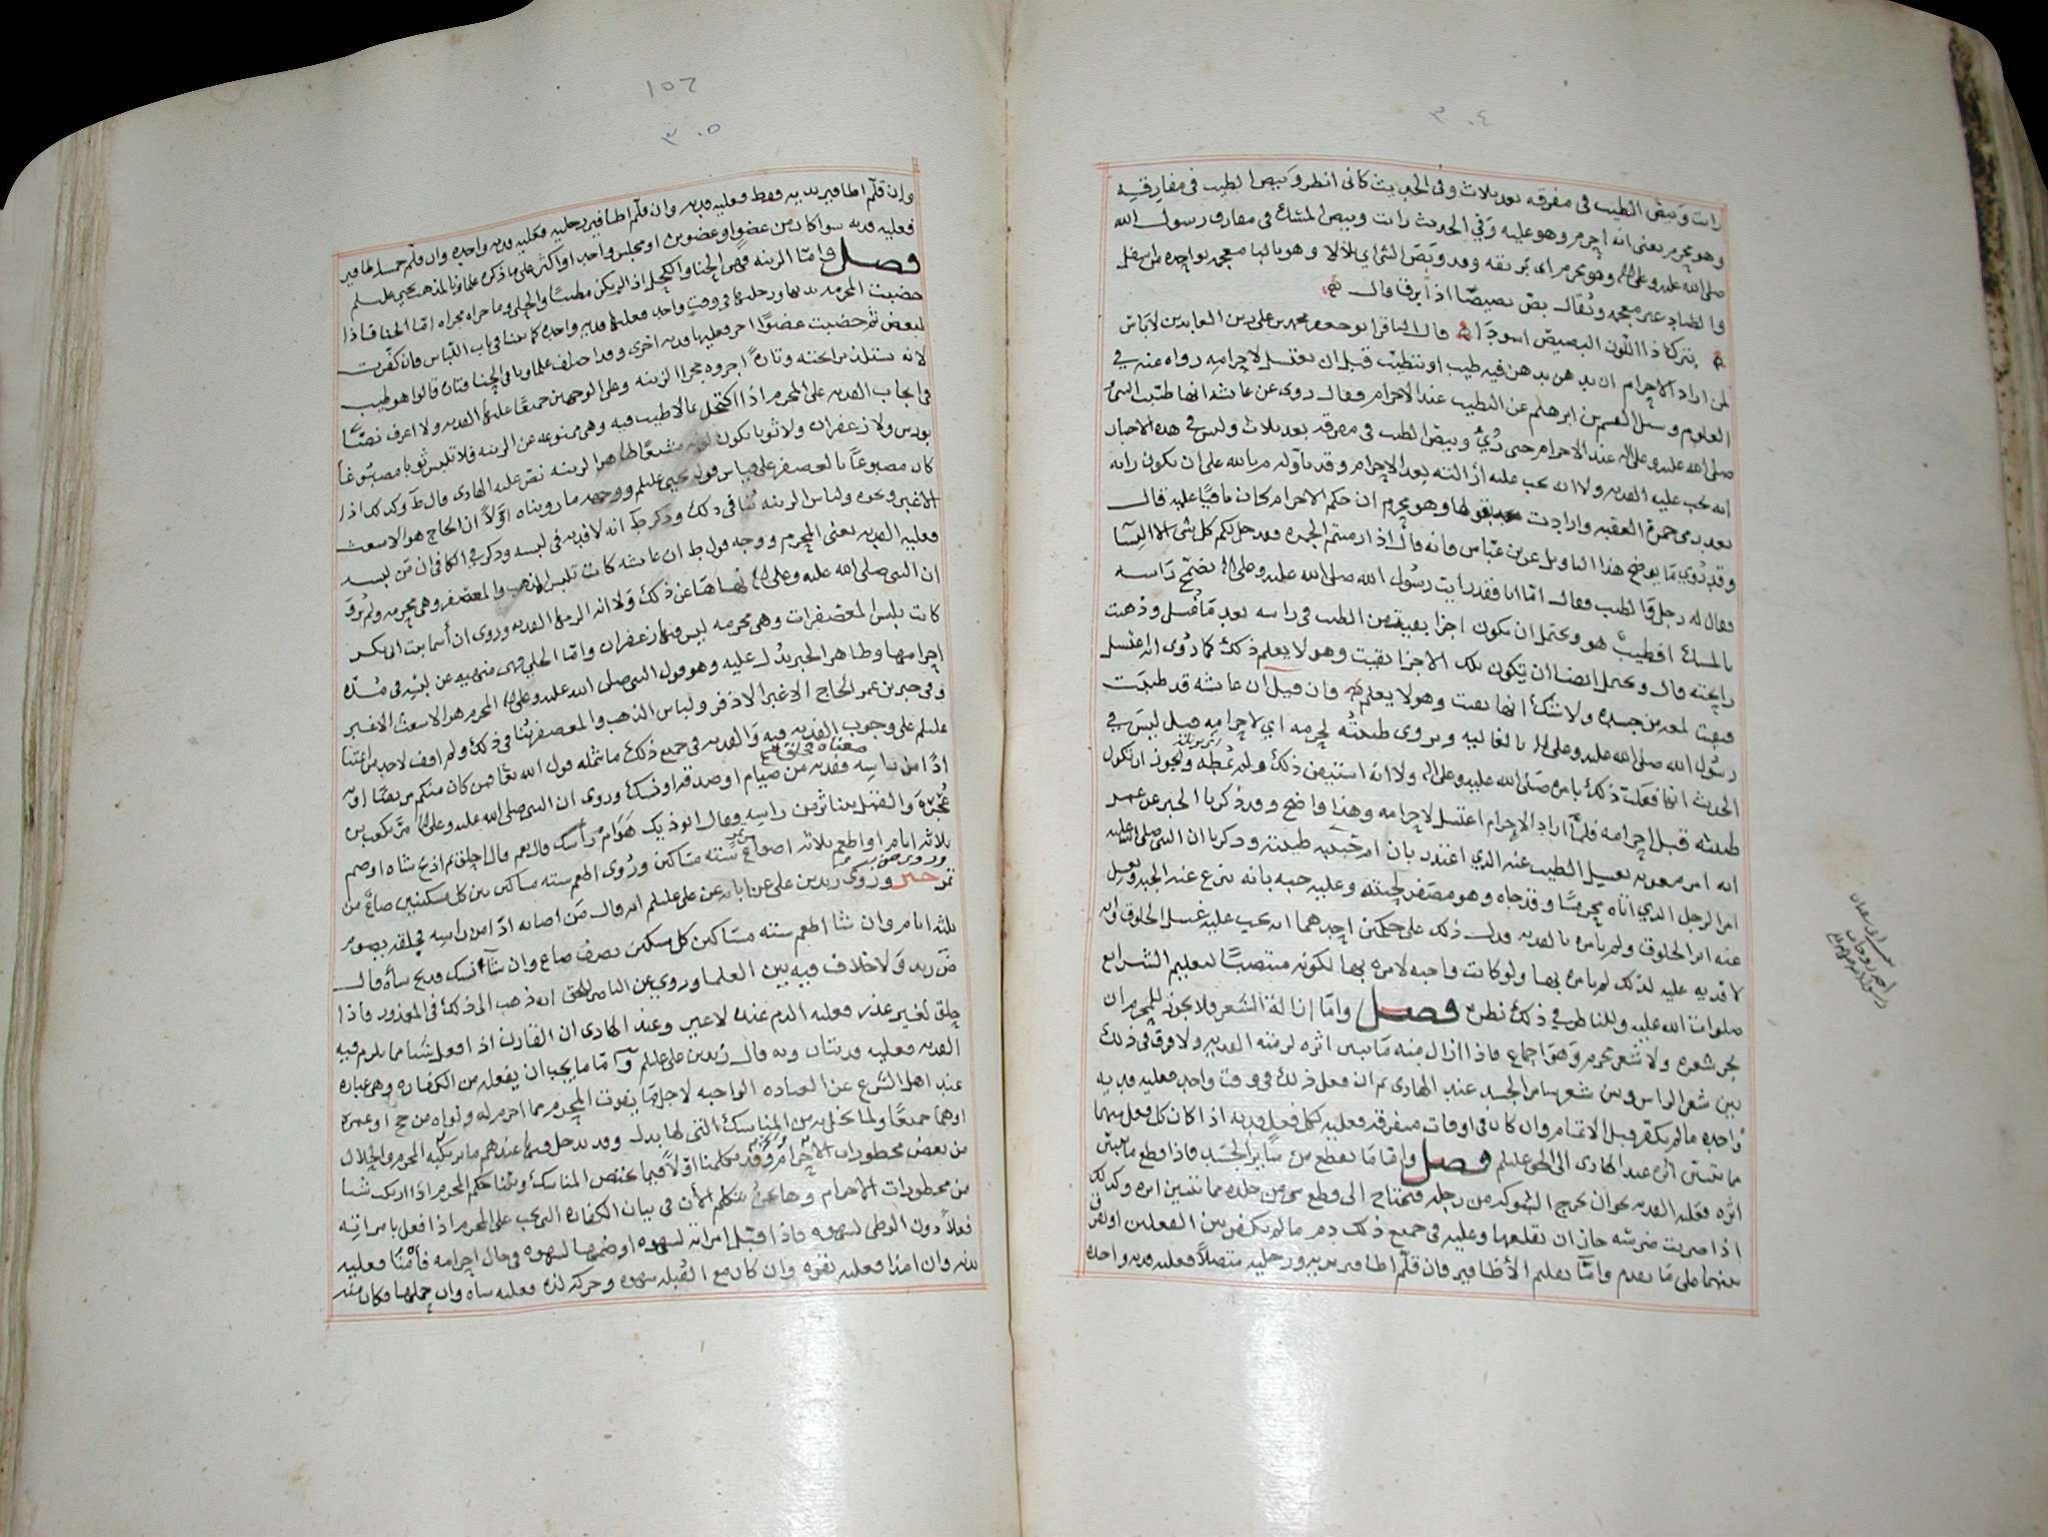 ٣٠٤
رايت وبيص الطيب في مفرقه بعد ثلاث وفي الحديث كاني انظر وبيص الطيب في مفارقه
وهو محرم يعني انه احرم وهو عليه وفي الحديث رايت وبيص المسك في مفارق رسول الله
صلى الله عليه وعلى اله وهو محرم اي بريقه وبص الشي اي تلالا وهو بالبا معجمه بواحده من اسفل
والصاد غير معجمه ويقال بص بصيصا اذا برق قال
يتركنا ذا اللون البصيص اسودا قال الباقر ابو جعفر محمد بن علي زين العابدين لا باس
لمن اراد الاحرام ان يدهن بدهن فيه طيب او يتطيب قبل ان يغتسل لاحرامه رواه عنه في
العلوم وسئل القسم بن ابرهيم عن الطيب عند الاحرام فقال روي عن عائشه انها طيبت النبي
صلى الله عليه وعلى اله عند الاحرام حتى رُئي وبيص الطيب في مفرقه بعد ثلاث وليس في هذه الاخبار
انه يجب عليه الفديه ولا انه يجب عليه ازالته بعد الاحرام وقد تاوله م بالله على ان يكون راته
بعد رمي جمرة العقبه وارادت بقولها وهو محرم ان حكم الاحرام كان باقيا عليه قال
وقد روي ما يوضح هذا التاويل عن بن عباس فانه قال اذا رميتم الجمره فقد حل لكم كل شي الا النسا
فقال له رجل والطيب فقال اما انا فقد رايت رسول الله صلى الله عليه وعلى اله يضمخ راسه
بالمسك افطيب هو ويحتمل ان يكون اجزا بقيت من الطيب في راسه بعد ما غسل وذهبت
رايحته قال ويحتمل ايضا ان يكون تلك الاجزا بقيت وهو لا يعلم ذلك كما روي انه اغتسل
فبقيت لمعه من جسده ولا شك انها بقيت وهو لا يعلم فان قيل ان عائشه قد طيبت
رسول الله صلى الله عليه وعلى اله بالغاليه ويروى طيبته لحرمه اي لاحرامه قبل ليس في
الحديث انها فعلت ذلك بامره صلى الله عليه وعلى اله ولا انه استبقى ذلك ولم يمطه ويجوز ان تكون
طيبته قبل احرامه فلما اراد الاحرام اغتسل لاحرامه وهذا واضح وقد ذكرنا الخبر عن عمر
انه امر معويه بغسل الطيب عنه الذي اعتذر بان ام حبيبه طيبته وذكرنا ان النبي صلى الله عليه
امر الرجل الذي اتاه محرما وقد جاه وهو مصفر لحيته وعليه جبه بانه ينزع عنه الجبه ويغسل
عنه اثر الخلوق ولم يامره بالفديه فدل ذلك على حكمين احدهما انه يجب عليه غسل الخلوق وانه
لا فديه عليه لذلك لم يامره بها ولو كانت واجبه لامره بها لكونه منتصبا لتعليم الشرايع
صلوات الله عليه وللناظر في ذلك نظره فصل واما ازالة الشعر فلا يجوز للمحرم ان
يجز شعره ولا شعر محرم وهو اجماع فاذا ازال منه ما يبين اثره لزمته الفديه ولا فرق في ذلك
بين شعر الراس وبين شعر سائر الجسد عند الهادي ثم ان فعل ذلك في وقت واحد فعليه فديه
واحده ما لم يكفر قبل الاتمام وان كان في اوقات متفرقه فعليه لكل فعل فديه اذا كان كل فعل منهما
مما يتبين اثره عند الهادي الى الحق عليلم فصل واما ما يقطع من سائر الجسد فاذا قطع ما يبين
اثره فعليه الفديه نحو ان يخرج الشوكه من رجله فيحتاج الى قطع شي من جلده مما يتبين اثره وكذلك
اذا ضربت ضرسه جاز ان تقلعها وعليه في جميع ذلك دم ما لم يكفر بين الفعلين او يفرق
بينهما على ما تقدم واما تقليم الأظافير فان قلّم اظافير يديه ورجليه متصلاً فعليه فديه واحده
١٥٢
٣٠٥
وان قلّم اظافير يديه فقط فعليه فديه وان قلّم اظافير رجليه فعليه فديه واحده وان قلم خمسه اظافير
فعليه فديه سوا كان من عضو او عضوين او مجلس واحد او اكثر على ما ذكره علماؤنا لمذهب يحيى عليلم
فصل واما الزينه فهي الحنا والكحل اذا لم يكن مطيبا والحلي وما جرا مجراه اما الحنا فاذا
خضبت المحرمه يديها ورجليها في وقت واحد فعليها فديه واحده كما بينا في باب اللباس فان كفرت
لبعض ثم خضبت عضوا اخر فعليها فديه اخرى وقد اختلف علماونا في الحنا فتارة قالوا هو طيب
لانه يستلذ برايحته وتارةً اجروه مجرا الزينه وعلى الوجهين جميعا عليها الفديه ولا اعرف نصّاً
في ايجاب الفديه على المحرم اذا اكتحل بما لا طيب فيه وهي ممنوعه عن الزينه فلا تلبس ثوبا مصبوغا
بورس ولا زعفران ولا ثوبا يكون لونه مشبعا ظاهر الزينه نص عليه الهادي قال ط وكذلك اذا
كان مصبوغاً بالعصفر على قياس قول يحيى عليلم ووجهه ما رويناه اوّلاً ان الحاج هو الاشعث
الاغبر ونحوه ولباس الزينه ينافي ذلك وذكر ط انه لا فديه في لبسه وذكر في الكافي ان من لبسه
فعليه الفديه يعني المحرم ووجه قول ط ان عائشه كانت تلبس الذهب والمعصفر وهي محرمه ولم يرو
ان النبي صلى الله عليه وعلى اله نهاها عن ذلك ولا انه الزمها الفديه وروي ان أسما بنت ابي بكر
كانت تلبس المعصفرات وهي محرمه ليس فيها زعفران واما الحلي فهي منهيه عن لبسه في مُدة
احرامها وظاهر الخبر يدل عليه وهو قول النبي صلى الله عليه وعلى اله المحرم هو الاشعث الاغبر
وفي خبر بن عمر الحاج الاغبر الاذفر ولباس الذهب والمعصفر ينافي ذلك ولم اقف لاحد من ائمتنا
عليلم على وجوب الفديه فيه والفديه في جميع ذلك ما شمله قول الله تعا فمن كان منكم مريضا او به
معناه فحلق
اذا من راسه ففديه من صيام او صدقه او نسك وروي ان النبي صلى الله عليه وعلى اله مر بكعب بن
عُجرة والقمل يتناثر من راسه وقال ايوذيك هوام رأسك قال نعم قال احلق ثم اذبح شاه او صم
ثلاثه ايام او اطعم ثلاثه اصواع ستة مساكين ورُوي اطعم سته مساكين بين كل مسكينين صاع من
تمر خبر وروى زيد بن علي عن ابائه عن علي عليلم انه قال من اصابه اذا من راسه فحلقه يصوم
ثلثه ايام وان شا اطعم سته مساكين كل مسكين نصف صاع وان شآ نسك فذبح شاه قال
ض زيد ولا خلاف فيه بين العلما وروي عن الناصر للحق انه ذهب الى ذلك في المعذور فاذا
حلق لغير عذر فعليه الدم عنده لا غير وعند الهادي ان القارن اذا فعل شيا مما يلزم فيه
الفديه فعليه فديتان وبه قال زيد بن علي عليلم واما ما يجب ان يفعله من الكفاره وهي عباره
عند اهل الشرع عن العباده الواجبه لاجل ما يفوت المحرم مما احرم له ونواه من حج او عمره
اوهما جميعا ولما يخل به من المناسك التي لها بدل وقد يدخل فيها عندهم ما يرتكبه المحرم والحلال
من بعض محظورات الاحرام والحرم وقد تكلمنا اوّلاً فيما يختص المناسك وبينا حكم المحرم اذا ارتكب شيا
من محظورات الاحرام وها نحن نتكلم الأن في بيان الكفاره التي تجب على المحرم اذا فعل بامراته
فعلاً دون الوطي لشهوه فاذا قبّل امراته لشهوه او ضمها لشهوه في حال احرامه فأمنا فعليه
بدنه وان امذا فعليه بقره وان كان مع القُبله شهوه وحركه لذه فعليه شاه وان حملها فكان منه